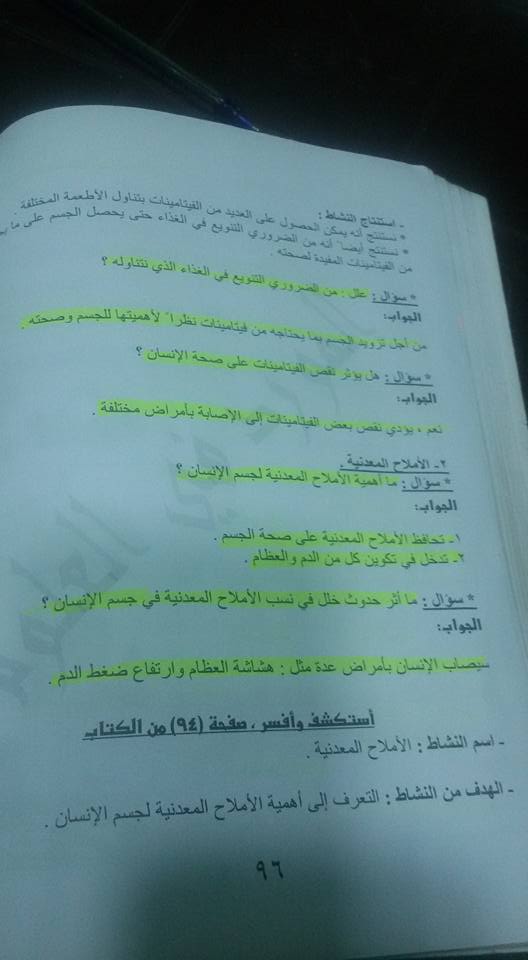 - استنتاج النشاط :
* نستنتج أنه يمكن الحصول على العديد من الفيتامينات بتناول الأطعمة المختلفة .
* نستنتج أيضا" أنه من الضروري التنويع في الغذاء حتى يحصل الجسم على ما
من الفيتامينات المفيدة لصحته .
* سؤال : علل : من الضروري التنويع في الغذاء الذي نتناوله ؟
الجواب:
من أجل تزويد الجسم بما يحتاجه من فيتامينات نظرا" لأهميتها للجسم وصحته .
* سؤال : هل يؤثر نقص الفيتامينات على صحة الإنسان ؟
الجواب:
نعم ، يؤدي نقص بعض الفيتامينات إلى الإصابة بأمراض مختلفة .
٢- الأملاح المعدنية .
* سؤال : ما أهمية الأملاح المعدنية لجسم الإنسان ؟
الجواب:
١- تحافظ الأملاح المعدنية على صحة الجسم .
٢- تدخل في تكوين كل من الدم والعظام .
* سؤال : ما أثر حدوث خلل في نسب الأملاح المعدنية في جسم الإنسان ؟
الجواب:
سيصاب الإنسان بأمراض عدة مثل : هشاشة العظام وارتفاع ضغط الدم .
أستكشف وأفسر ، صفحة (٩٤) من الكتاب
- اسم النشاط : الأملاح المعدنية .
- الهدف من النشاط : التعرف إلى أهمية الأملاح المعدنية لجسم الإنسان .
٩٦